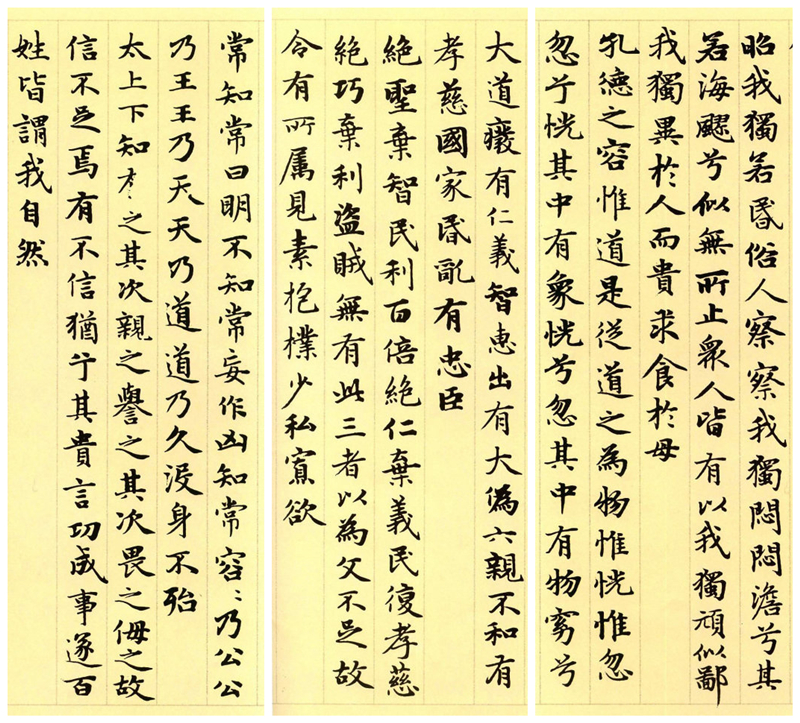 常知常曰明不知常妄作凶知常容〻乃公公
乃王王乃天天乃道道乃久没身不殆
太上下知有之其次親之譽之其次畏之侮之故
信不足焉有不信猶兮其貴言功成事遂百
姓皆謂我自然
大道癈有仁義智惠出有大偽六親不和有
孝慈國家昬亂有忠臣
絕聖棄智民利百倍絕仁棄義民復孝慈
絕巧棄利盜賊無有此三者以為文不足故
令有所属見素抱樸少私寡欲
昭我獨若昬俗人察察我獨悶悶澹兮其
若海飂兮似無所止衆人皆有以我獨頑似鄙
我獨異於人而貴求食於母
孔德之容惟道是從道之為物惟恍惟忽
忽兮恍其中有象恍兮忽其中有物窈兮